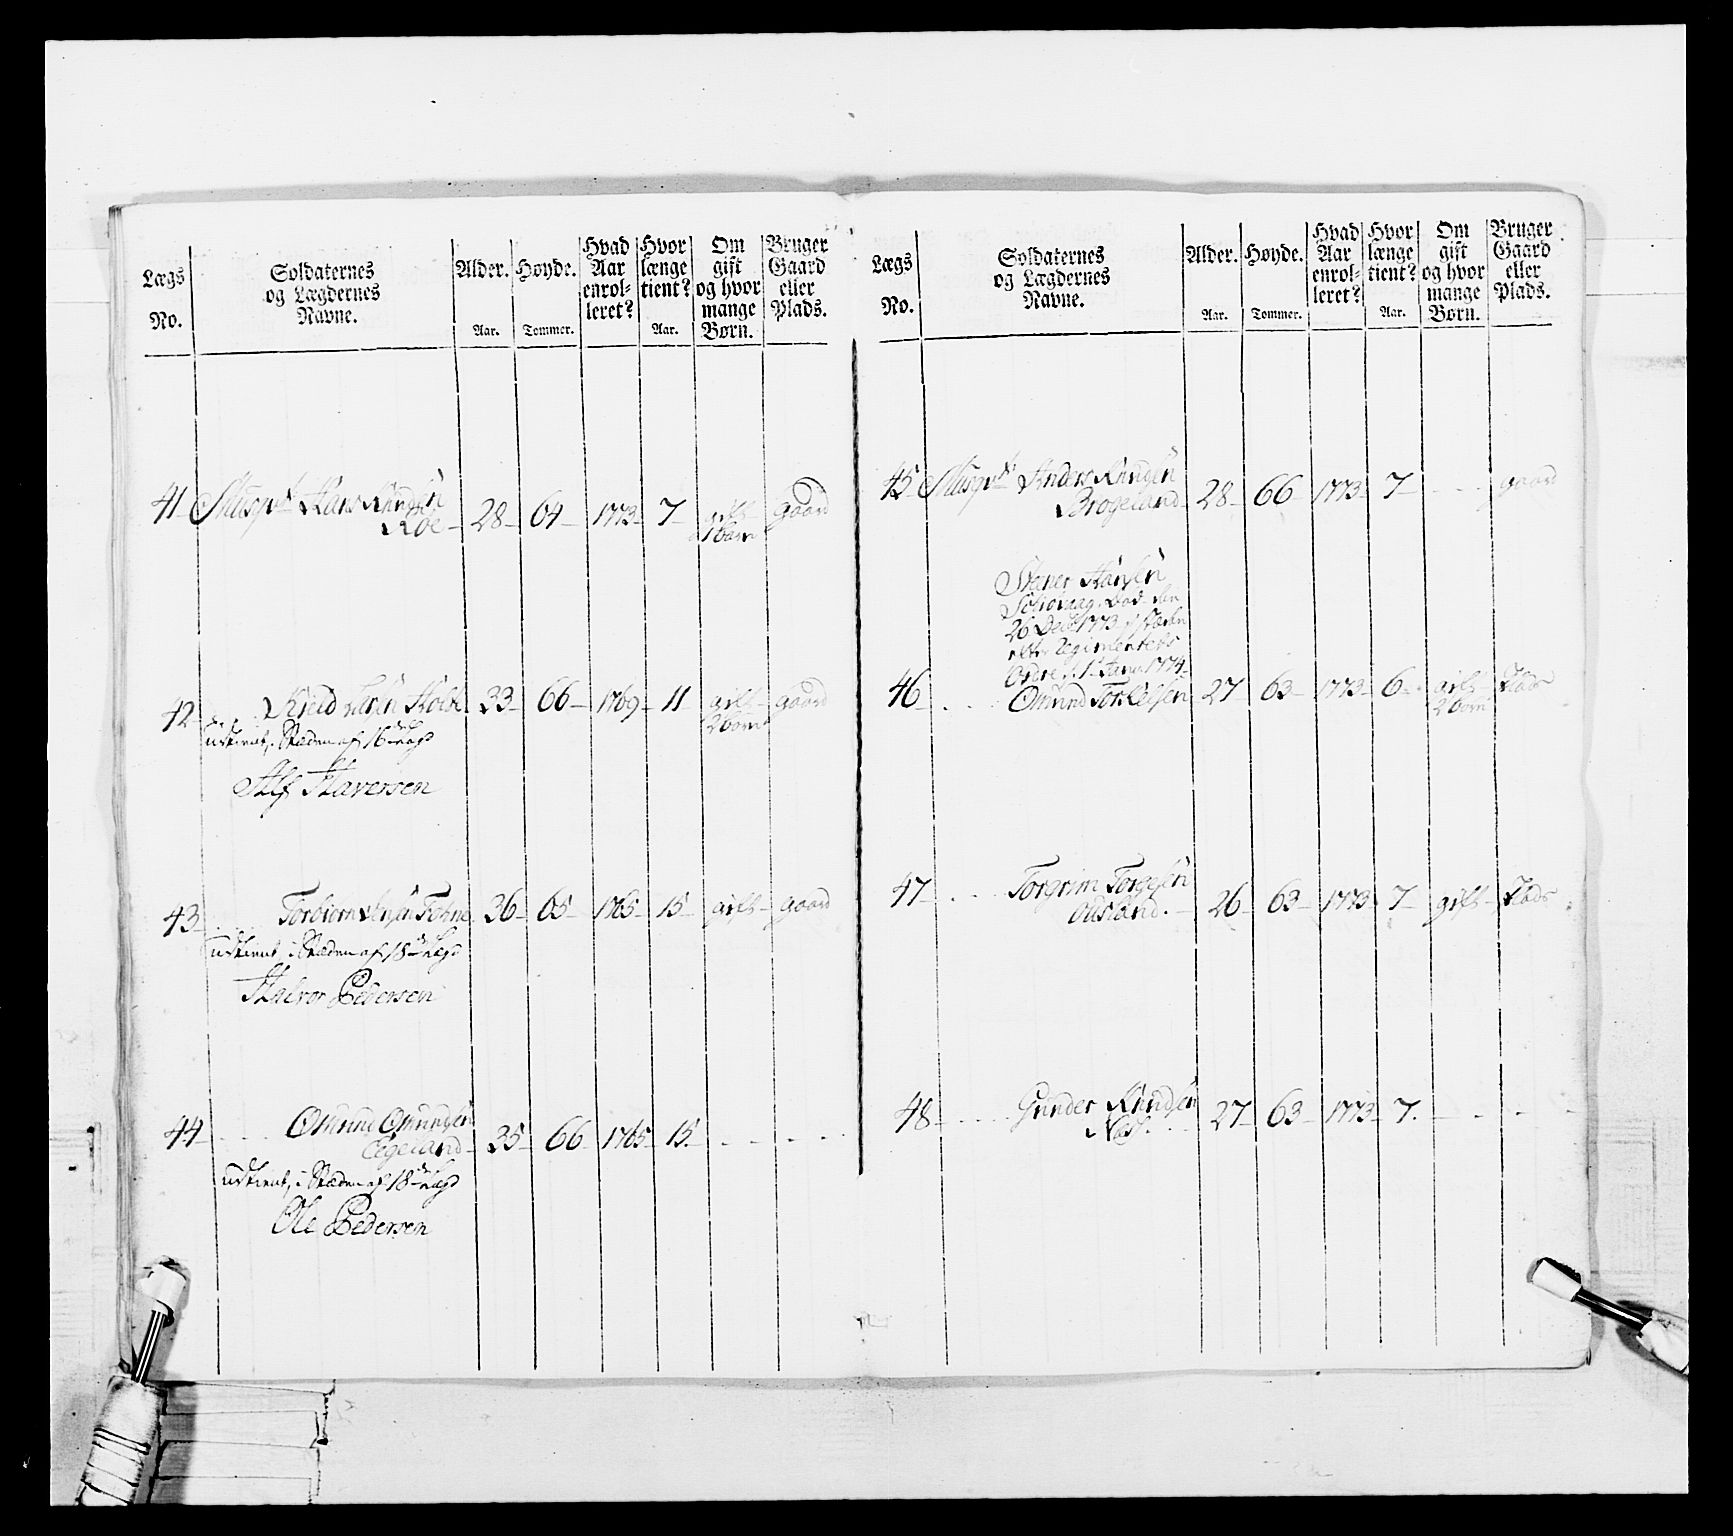 Lægs
No.
Soldaternes
og Lægdernes
Navne.
Alder.
Aar.
Høyde.
Tommer.
Hvad
Aar
enrol-
leret?
Hvor
længe
tient?
Aar.
Om
gift
og hvor
mange
Børn.
Bruger
Gaard
eller
Plads.
41 Musqvt Hans Knudsen
Roe 28 64 1773 7 gift gaard
1 barn
42 Kield 33 66 1769 11 gift gaard
2 børn
udtient, i Stæden af 16de Lægd
Alf Haversen
43 Torbiørn 36 65 1765 15 gift gaard
udtient, i Stæden af 18de Lægd
Halvor Pedersen
44 Omund Omundsen
Egeland 35 66 1765 15
udtient, i Stæden af 18de Lægd
Ole Pedersen
Lægs
No.
Soldaternes
og Lægdernes
Navne.
Alder.
Aar.
Høyde.
Tommer.
Hvad
Aar
enrol-
leret?
Hvor
længe
tient?
Aar.
Om
gift
og hvor
mange
Børn.
Bruger
Gaard
eller
Plads.
45 Musqvt Anders Knudsen
Brogeland 28 66 1773 7 gaard
Hansen
død den
26 Dec 1773, i Stæden
efter Regimentets
Ordre d. 1 Janu 1774
46 Omund Torkelsen 27 63 1773 6 gift Plads
2 børn
47 Torgrim Torgesen
Ousland 26 63 1773 7 gift Plads
48 Gunder Knudsen
27 63 1773 7